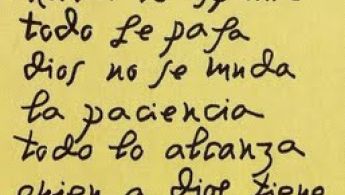 todo se pasa
dios no se muda
la paciencia
todo lo alcanza
quien a dios tiene